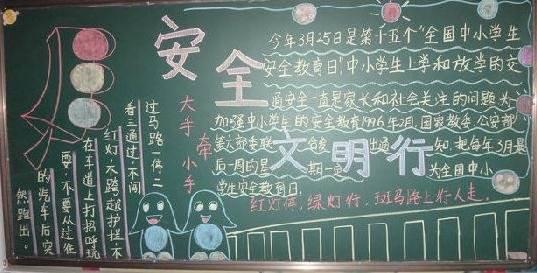 安全
文明行
大手牵小手
过马路一停、二
看三通过、不闯
红灯、不跨越护栏、不
在车道上打招呼玩
要、不要从过往
的汽车后突
然跑出。
今年3月25日是第十五个“全国中小学生
安全教育日”中小学生上学和放学的交
通安全一直是家长和社会关注的问题、为
加强中小学生的安全教育1996年2月,国家教委、公安部
通知,把每年3月最
后一周的星期一 为全国中小
学生安全教育日。
红灯停,绿灯行,斑马路上行人走。